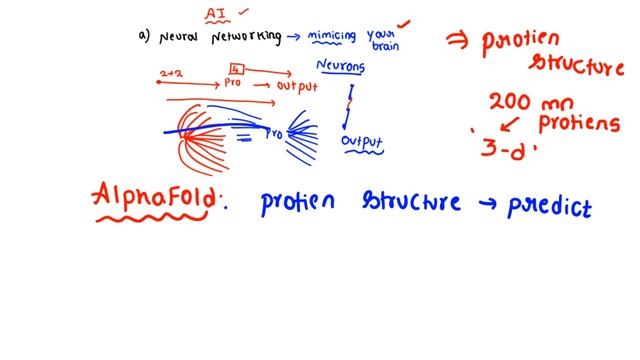 AI ✓
a) Neural Networking → mimicing your brain ✓
2+2 4 Pro → Output
Neurons
Pro
Output
⇒ protien
structure
200 mn
protiens
3-d
AlphaFold: protien structure → predict